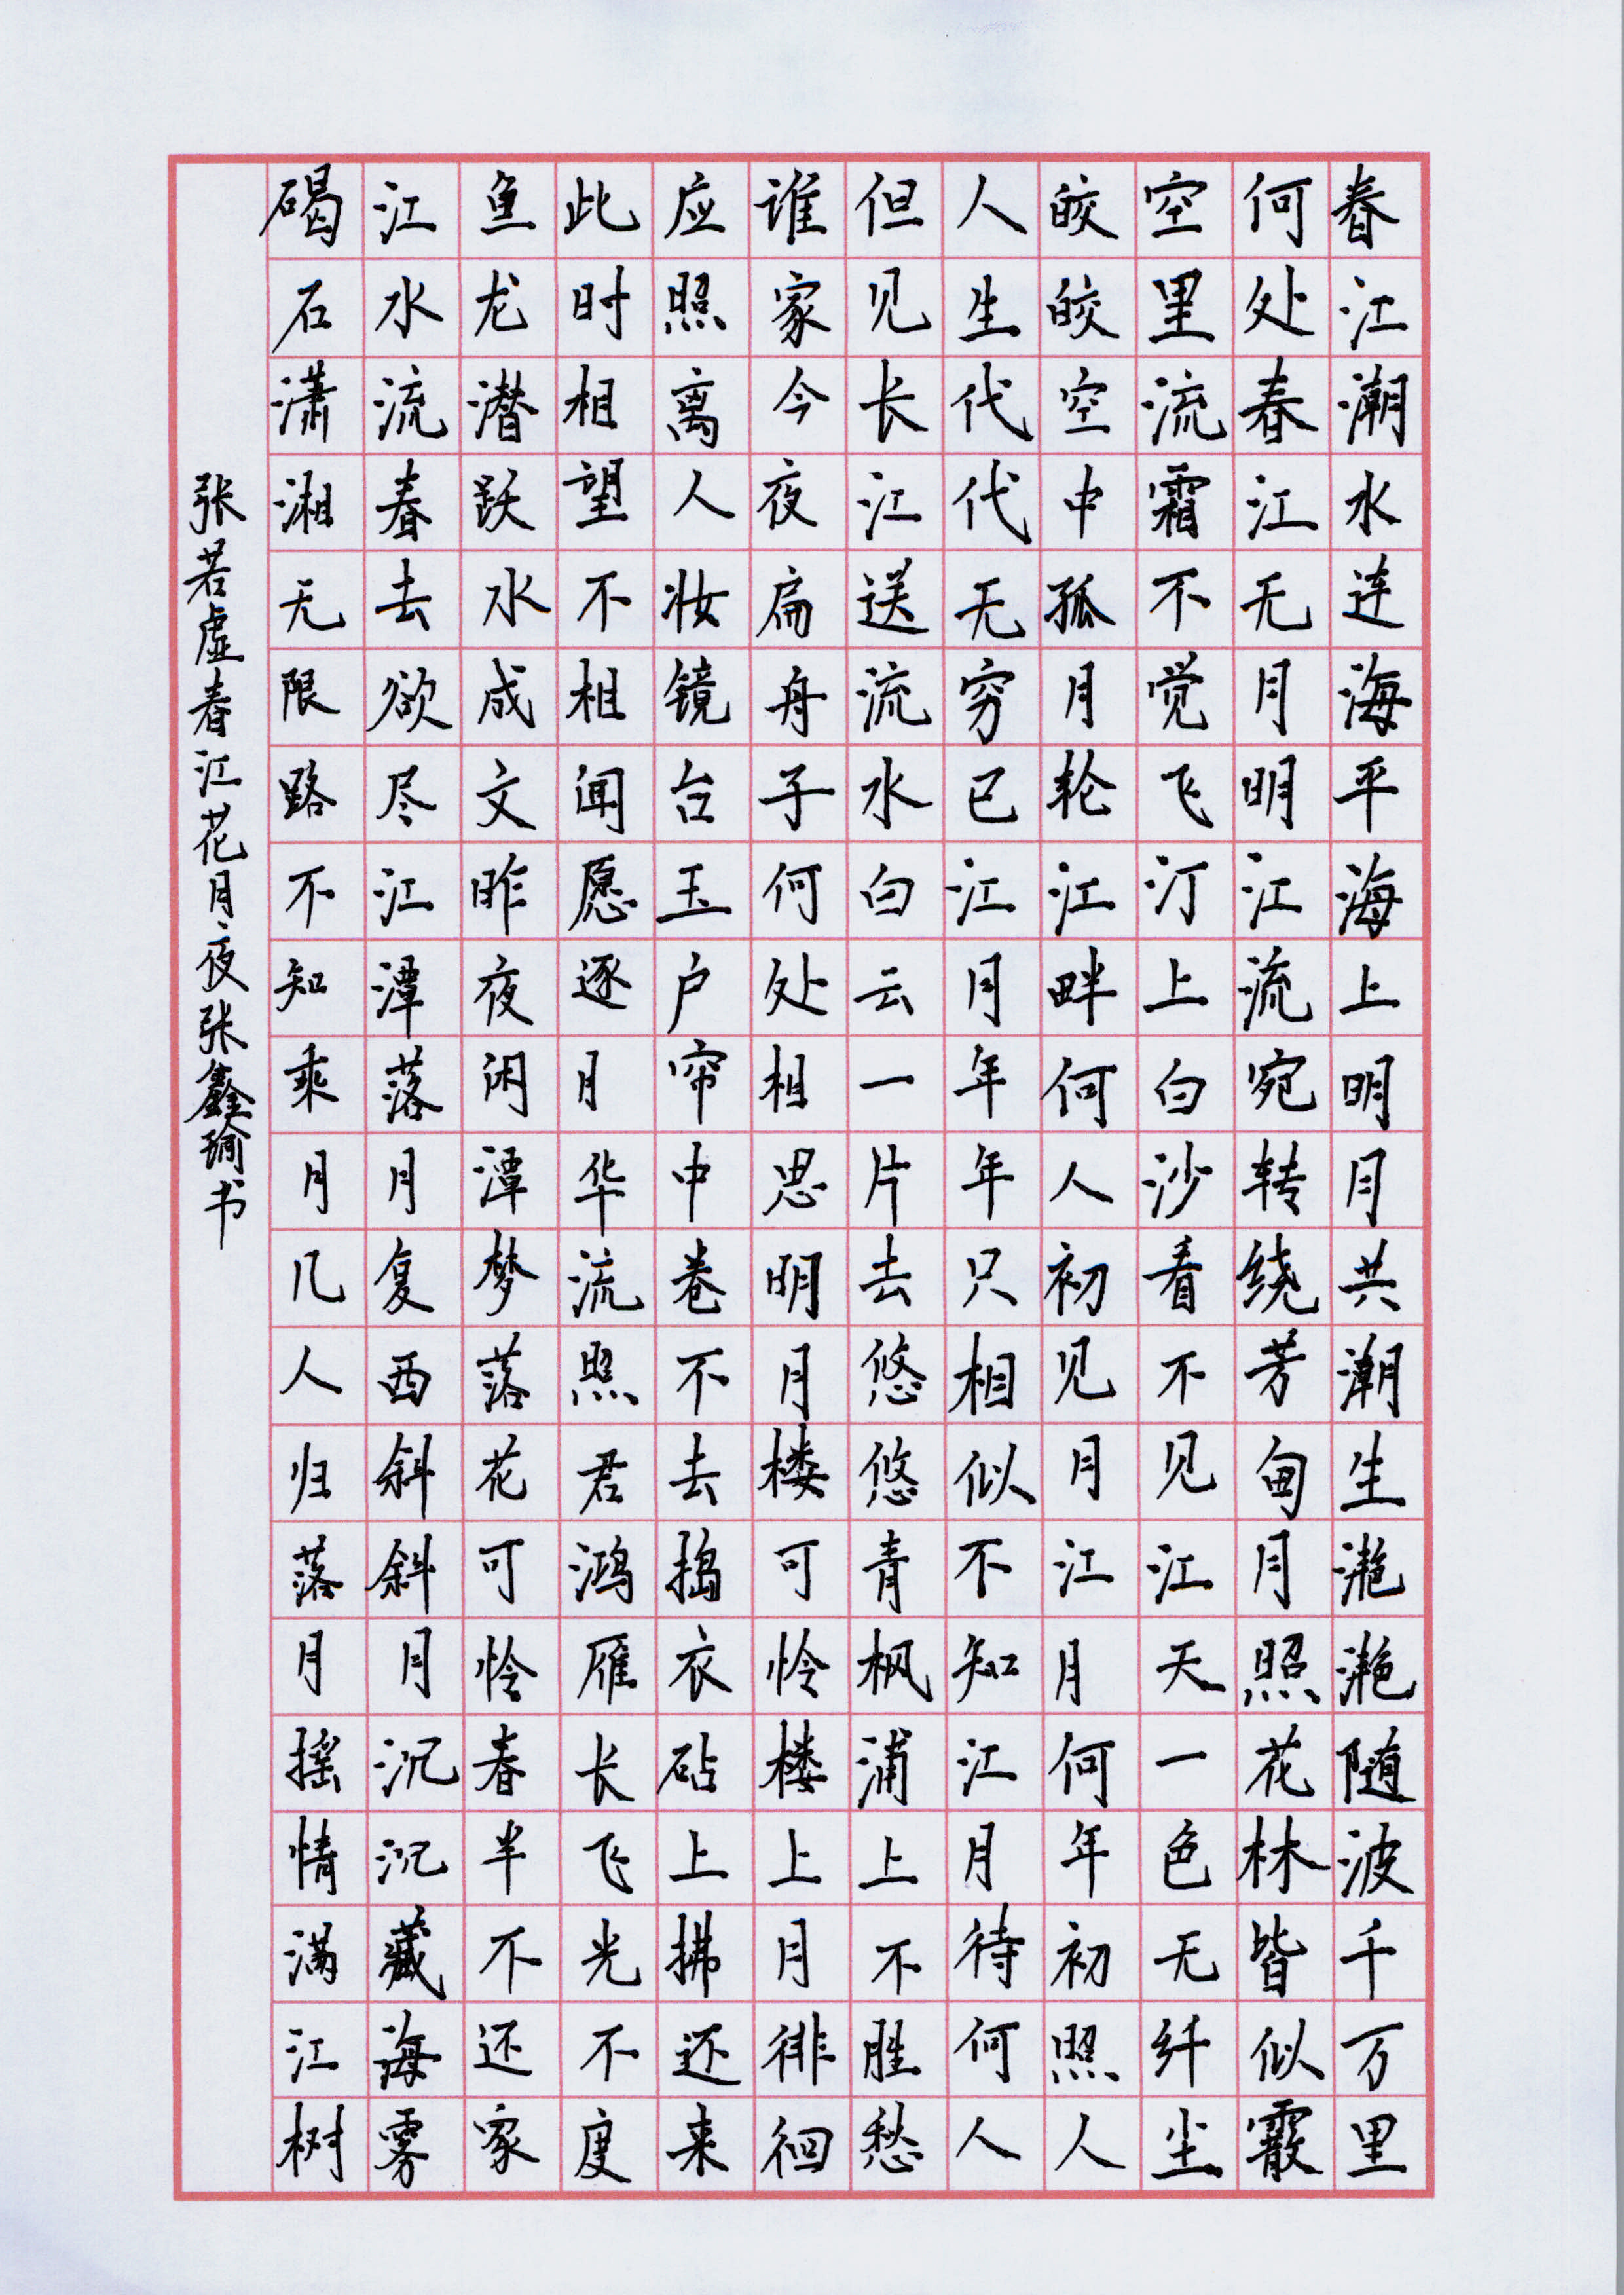 春江潮水连海平海上明月共潮生滟滟随波千万里
何处春江无月明江流宛转绕芳甸月照花林皆似霰
空里流霜不觉飞汀上白沙看不见江天一色无纤尘
皎皎空中孤月轮江畔何人初见月江月何年初照人
人生代代无穷已江月年年只相似不知江月待何人
但见长江送流水白云一片去悠悠青枫浦上不胜愁
谁家今夜扁舟子何处相思明月楼可怜楼上月徘徊
应照离人妆镜台玉户帘中卷不去捣衣砧上拂还来
此时相望不相闻愿逐月华流照君鸿雁长飞光不度
鱼龙潜跃水成文昨夜闲潭梦落花可怜春半不还家
江水流春去欲尽江潭落月复西斜斜月沉沉藏海雾
碣石潇湘无限路不知乘月几人归落月摇情满江树
张若虚春江花月夜张鑫瑜书